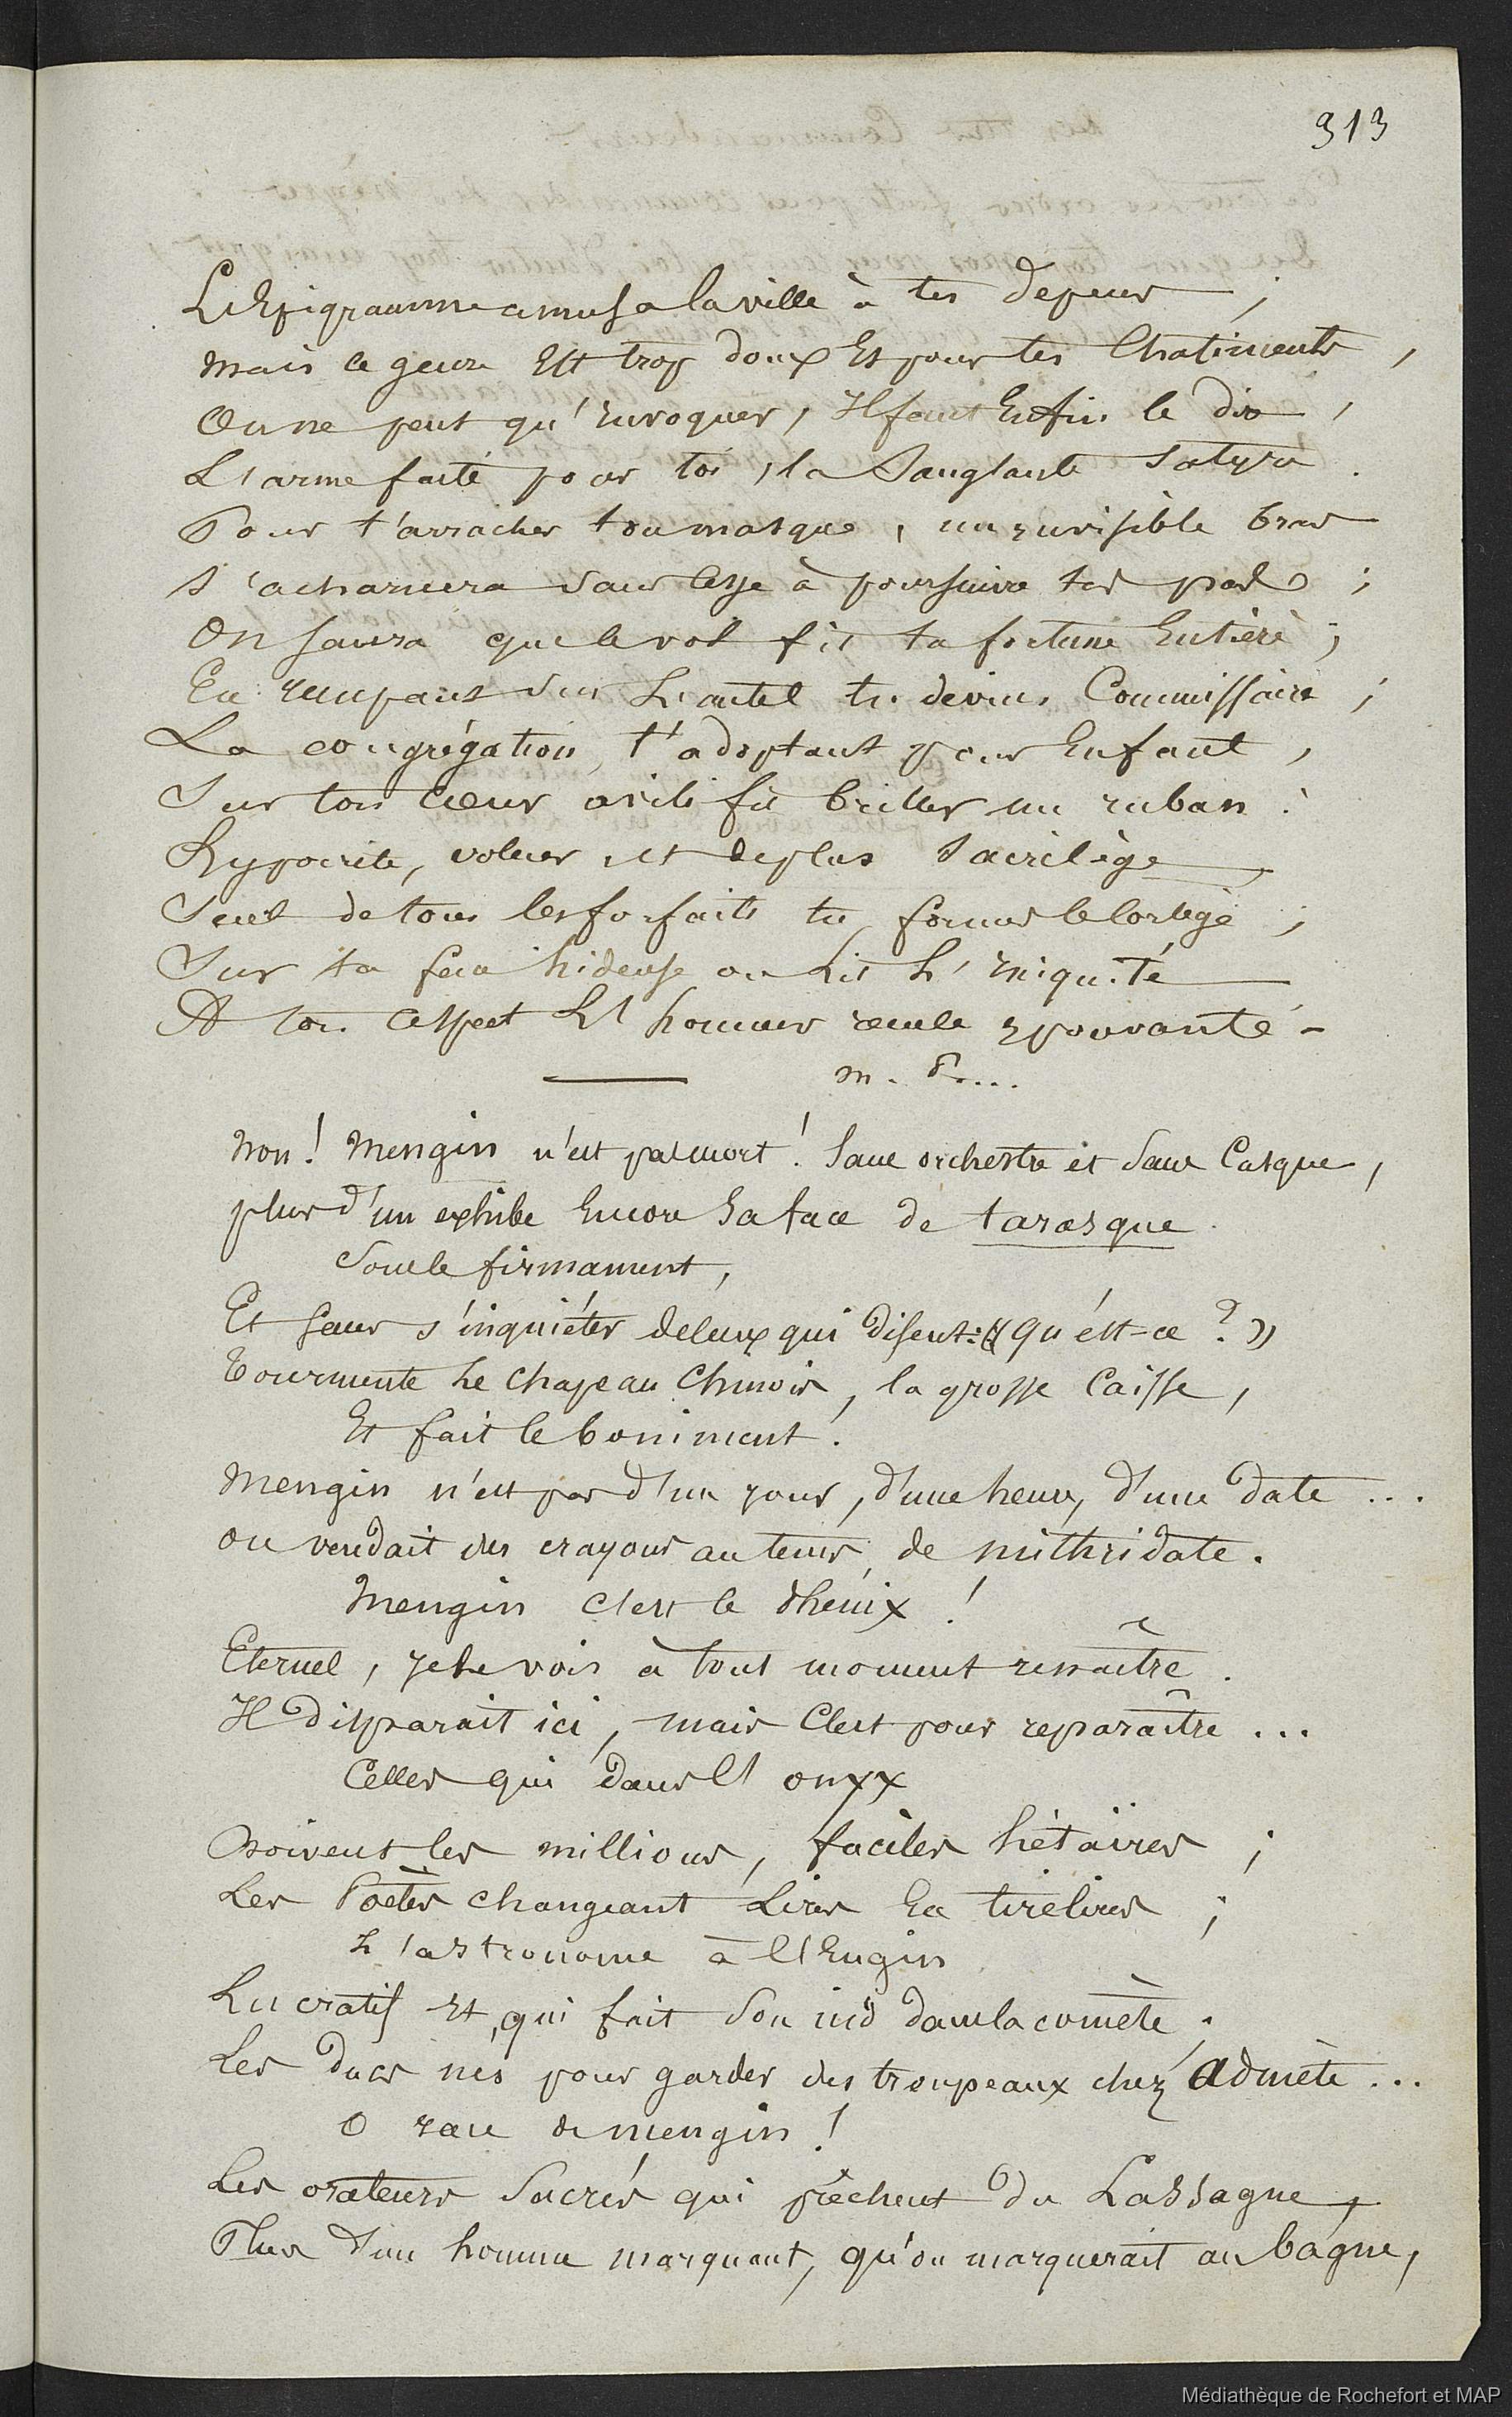 313
L'Epigramme amusa la ville à tes depens ;
mais ce genre Est trop doux Et pour tes Chatiments ,
On ne peut qu'invoquer , Il faut Enfin le dire ,
L'arme faite pour toi , la Sanglante Satyre .
Pour t'arracher ton masque , un invisible bras
S'acharnera sans cesse à poursuivre tes pas ;
On saura que le vol fit ta fortune Entière ;
En rempant sur L'autel tu devins Commissaire ;
La congrégation, t'adoptant pour Enfant ,
Sur ton cœur avili fit briller un ruban :
Hypocrite, voleur , et de plus Sacrilège ,
Seul de tous les forfaits tu formes le Cortège ;
Sur ta face hideuse on Lit L'iniquité
A ton aspect L'honneur recule epouvanté -
m. P....
Non ! Mengin n'est pas mort ! Sans orchestre et sans Casque ,
plus d'un exhibe Encore Sa face de tarasque .
Sous le firmament ,
Et sans s'inquiéter de ceux qui disent : « Qu'ést-ce ? »
Tourmente Le Chapeau Chinois , la grosse Caisse ,
Et fait le boniment .
Mengin n'est pas d'un jour , d'une heure, d'une date ...
on vendait des crayons au tems, de mithridate .
Mengin c'est le Phénix !
Eternel , je le vois à tout moment renaître .
Il disparait ici , mais C'est pour reparaître ...
Celles qui dans l'onyx
boivent les millions , faciles hétaïres ;
Les Poètes changeant Lires En tirelires ;
L'astronome à l'Engin
Lucratif et , qui fait son nid dans la comète ;
Les ducs nés pour garder des troupeaux chez Admète ...
O race de mengin !
Les orateurs Sacrés qui prêchent du Lassagne ,
Plus d'un homme marquant , qu'on marquerait au bagne ,
Médiathèque de Rochefort et MAP